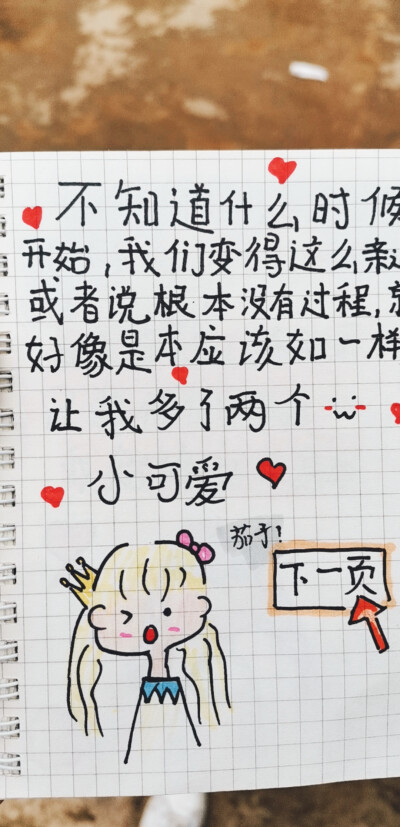 不知道什么时候
开始,我们变得这么亲近
或者说根本没有过程,就
好像是本应该如一样
让我多了两个
小可爱
茄子!
下一页